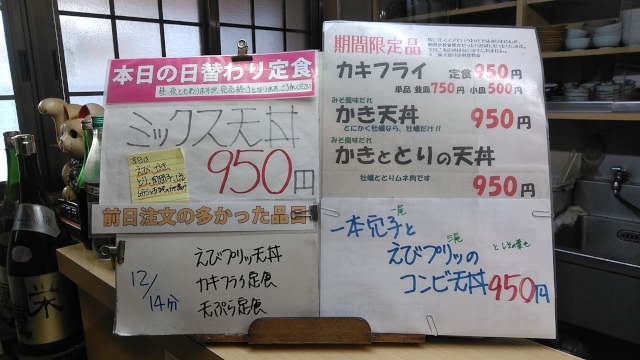 本日の日替わり定食
昼・夜ともありますが、完売終了となります。ご了承ください
ミックス天丼
950円
本日は
えび、かき、
前日注文の多かった品目
12/14分
えびプリッ天丼
カキフライ定食
天ぷら定食
期間限定品
カキフライ 定食950円
単品 並皿750円 小皿500円
みそ風味だれ
かき天丼 950円
とにかく牡蠣なら、牡蠣だけ!!
みそ風味だれ
かきととりの天丼
牡蠣ととりムネ肉です 950円
一尾
一本穴子と
三尾
えびプリッの
コンビ天丼950円
栄